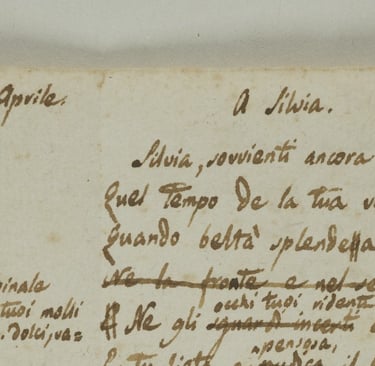 Aprile.
A Silvia.
Silvia, sovvienti ancora
Quel tempo de la tua
Quando beltà splendea
Ne la fronte e nel
occhi tuoi ridenti
Ne gli sguardi incerti
pensosa,
inale
tuoi molli
dolci, va=